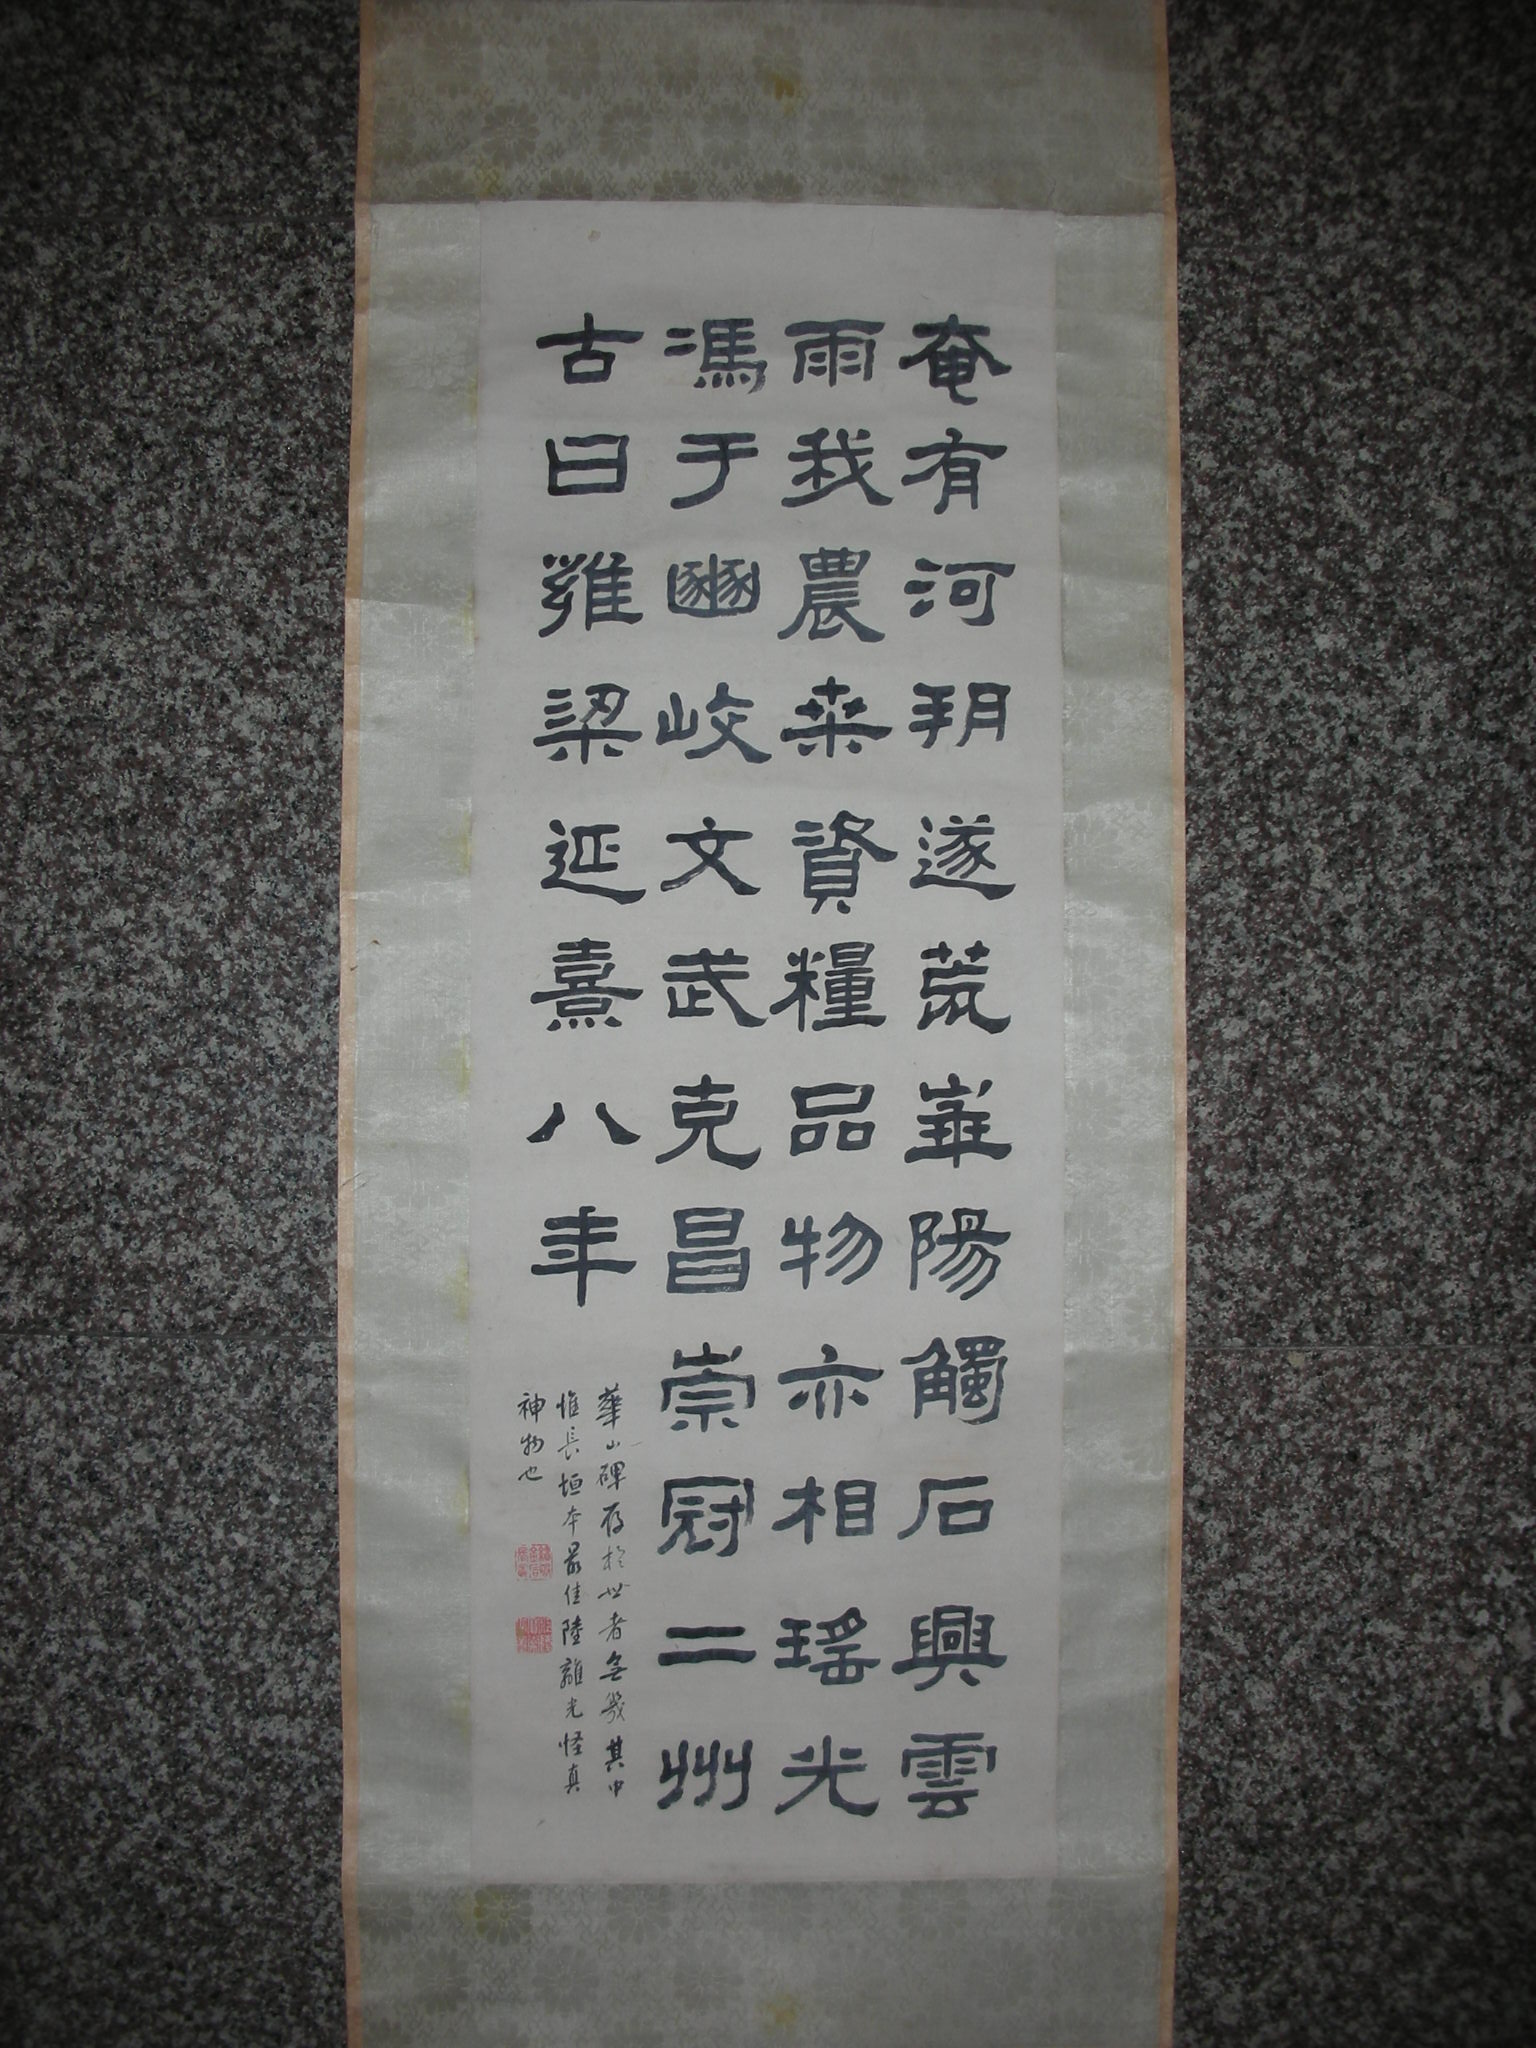 奄有河朔遂荒崋陽觸石興雲
雨我農桒資糧品物亦相瑤光
馮于豳岐文武克昌崇冠二州
古曰雍梁延熹八年
華山碑存於世者無幾其中
惟長垣本最佳陸離光怪真
神物也